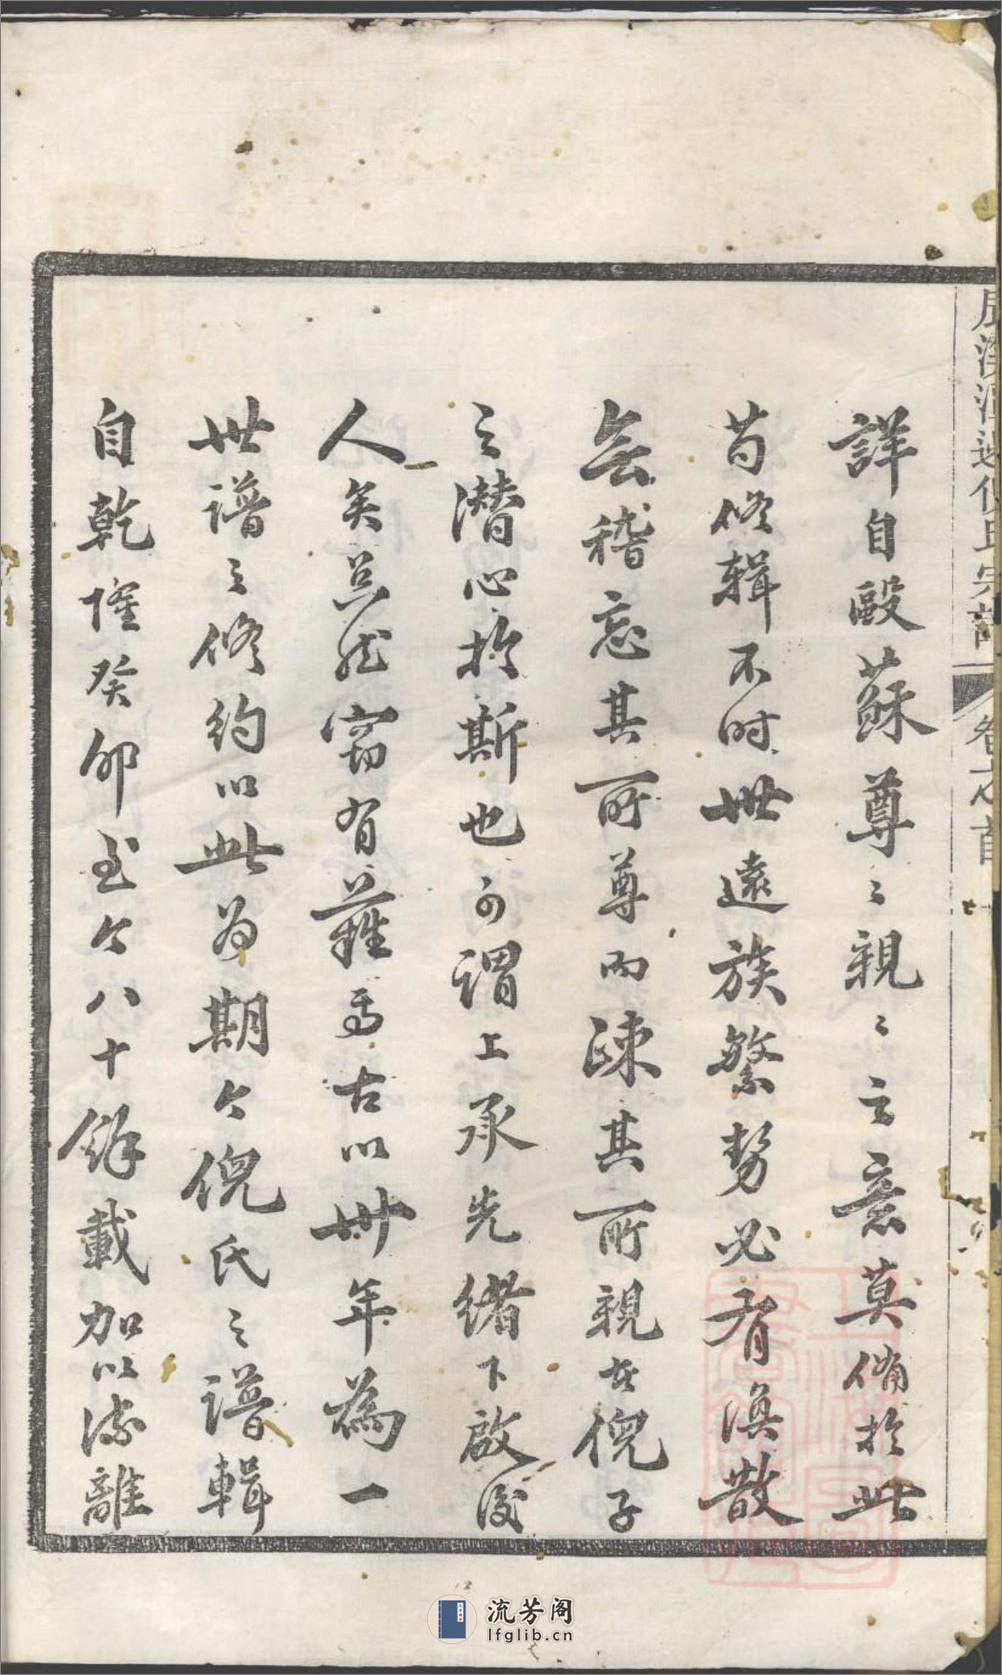 詳自歐蘇尊〻親〻之意莫備於此
苟修輯不时世遠族繁势必有渙散
無稽忘其所尊而疎其所親者倪子
之潜心於斯也可謂上承先緒下啟後
人矣然窃有難焉古以卅年為一
世譜之修約以此为期今倪氏之譜輯
自乾隆癸卯至今八十餘載加以流離
倪氏宗譜
卷之首
流芳阁
lfglib.cn